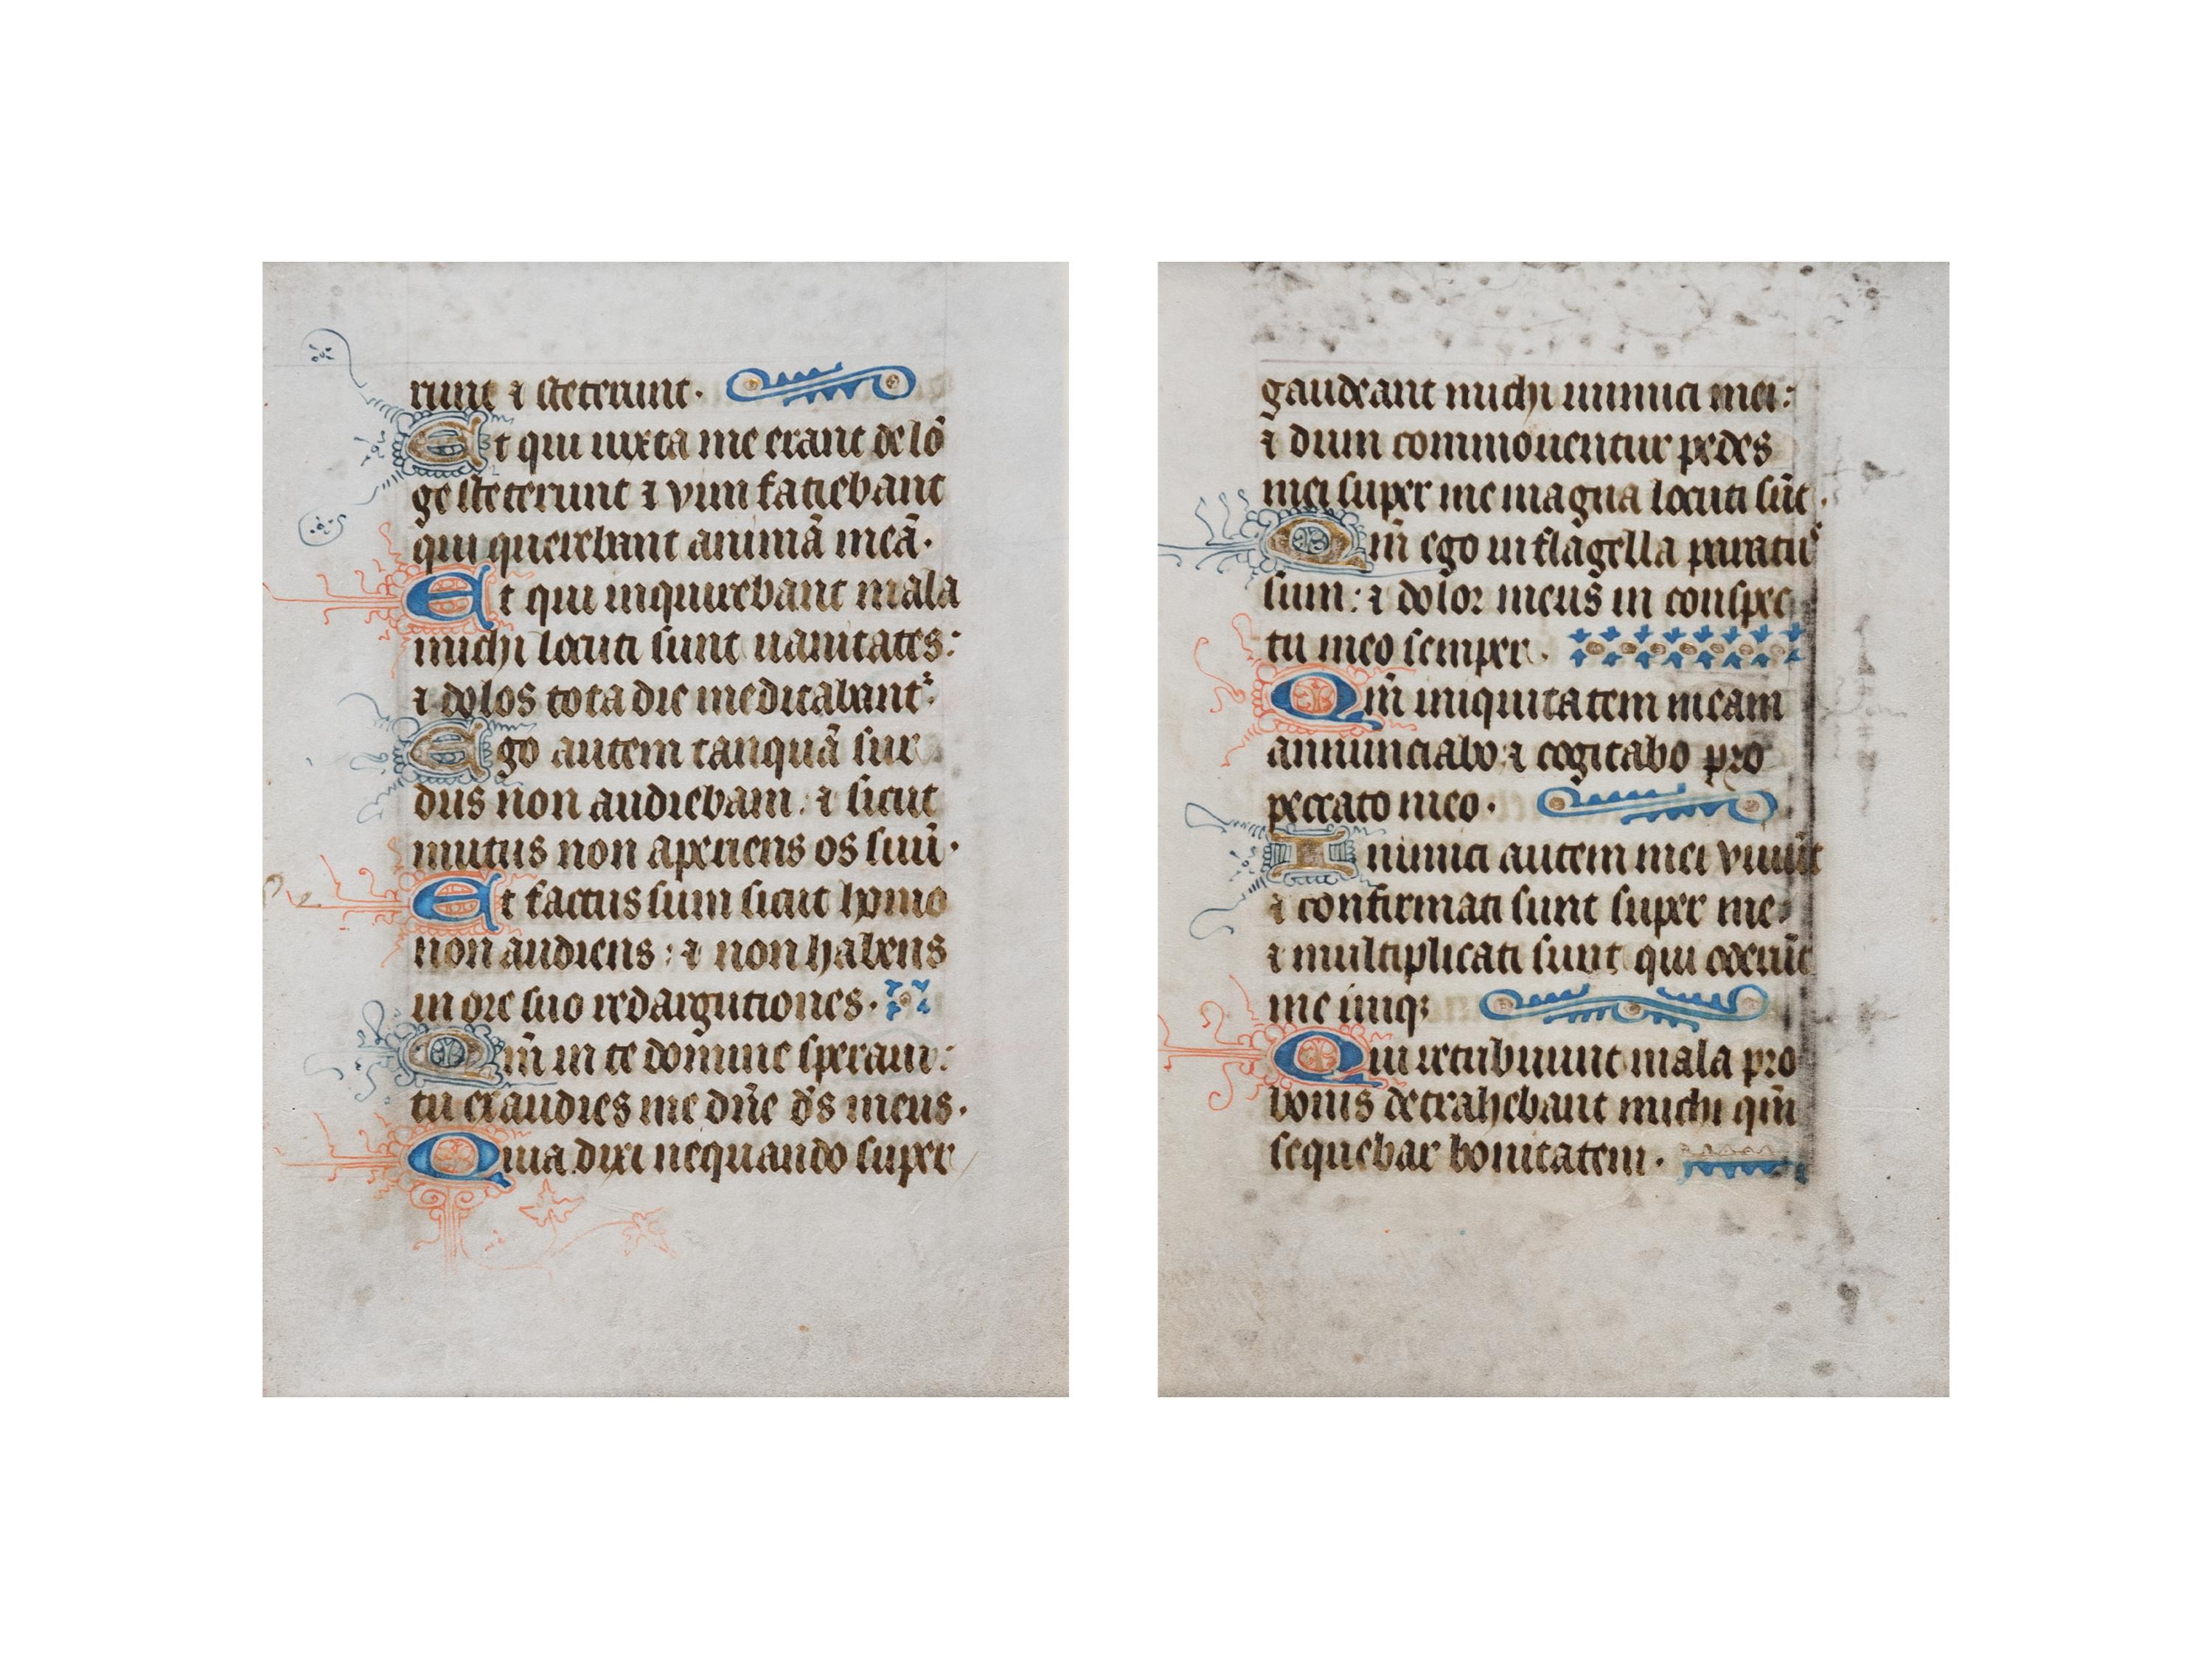 runt ⁊ steterunt.
Et qui iuxta me erant de lō
ge steterunt ⁊ vim faciebant
qui querebant animā meā.
Et qui inquirebant mala
michi locuti sunt uanitates:
⁊ dolos tota die meditabant᷑
Ego autem tanquā sur
dus non audiebam: ⁊ sicut
mutus non aperiens os suū.
Et factus sum sicut homo
non audiens: ⁊ non habens
in ore suo redargutiones.
Qm̄ in te domine speraui:
tu exaudies me dn̄e ds̄ meus.
Quia dixi nequando super
gaudeant michi inimici mei:
⁊ dum commouentur pedes
mei super me magna locuti sūt.
Qm̄ ego in flagella paratꝰ
sum: ⁊ dolor meus in conspec
tu meo semper.
Qm̄ iniquitatem meam
annunciabo: ⁊ cogitabo pro
peccato meo.
Inimici autem mei viuūt
⁊ confirmati sunt super me:
⁊ multiplicati sunt qui oderūt
me iniqꝫ
Qui retribuunt mala pro
bonis detrahebant michi qm̄
sequebar bonitatem.